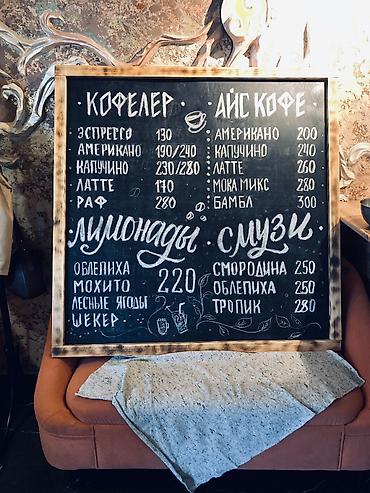 · КОФЕЛЕР ·
ЭСПРЕССО 130
АМЕРИКАНО 190/240
КАПУЧИНО 230/280
ЛАТТЕ 170
РАФ 280
АЙС КОФЕ ·
АМЕРИКАНО 200
КАПУЧИНО 240
ЛАТТЕ 260
МОКА МИКС 280
БАМБЛ 300
лимонады
ОБЛЕПИХА
МОХИТО 220
ЛЕСНЫЕ ЯГОДЫ
ШЕКЕР
· смузи ·
СМОРОДИНА 250
ОБЛЕПИХА 250
ТРОПИК 280